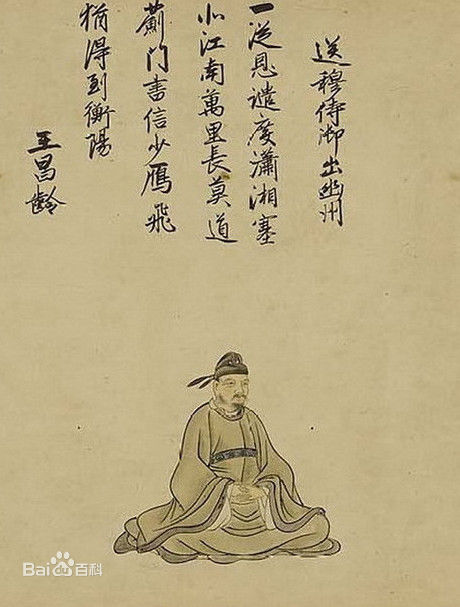 送穆侍御出幽州
一従恩譴度瀟湘塞
北江南萬里長莫道
薊门書信少鴈飛
猶得到衡陽
王昌齡
Baidu百科